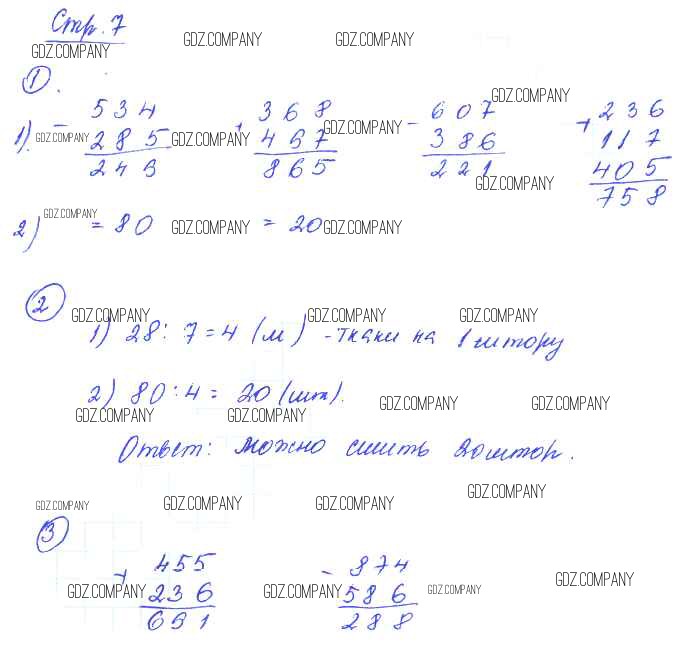 Стр. 7
GDZ.COMPANY GDZ.COMPANY GDZ.COMPANY
1.
GDZ.COMPANY
- 534 + 368 - 607 + 236
1). GDZ.COMPANY 285 GDZ.COMPANY 497 GDZ.COMPANY 386 117
249 865 221 405
GDZ.COMPANY
758
2) GDZ.COMPANY = 80 GDZ.COMPANY = 20 GDZ.COMPANY
2
GDZ.COMPANY GDZ.COMPANY GDZ.COMPANY
1) 28 : 7 = 4 (м) - ткани на 1 штору
2) 80 : 4 = 20 (шт).
GDZ.COMPANY GDZ.COMPANY GDZ.COMPANY GDZ.COMPANY
Ответ: можно сшить 20 штор.
GDZ.COMPANY GDZ.COMPANY GDZ.COMPANY GDZ.COMPANY
3
+ 455 - 874
GDZ.COMPANY 236 GDZ.COMPANY 586 GDZ.COMPANY GDZ.COMPANY
691 288